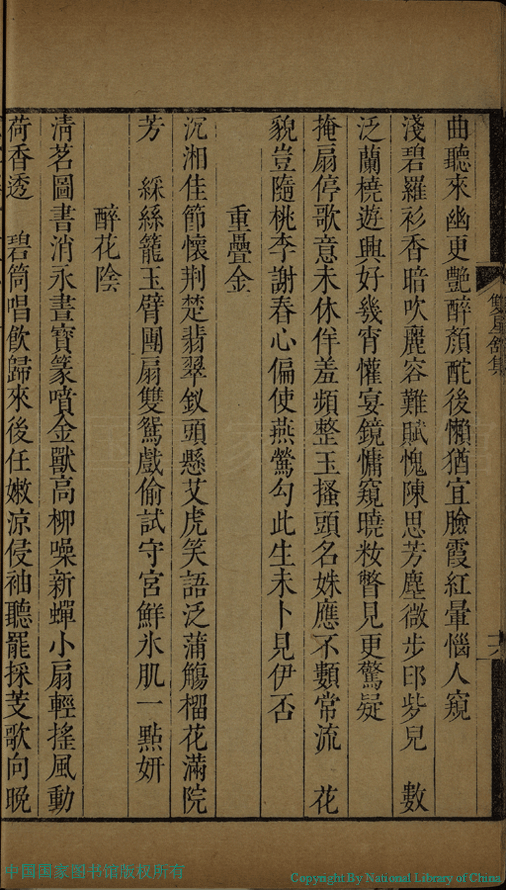 曲聽來幽更艷醉顏酡後懶猶宜臉霞紅暈惱人窺
淺碧羅衫香暗吹麗容難賦愧陳思芳塵微步印�兒　數
泛蘭橈遊興好幾宵懽宴鏡慵窺曉妝瞥見更驚疑
掩扇停歌意未休佯羞頻整玉搔頭名姝應不數常流　花
貌豈隨桃李謝春心偏使燕鶯勾此生未卜見伊否
重疊金
沉湘佳節懷荆楚翡翠釵頭懸艾虎笑語泛蒲觴榴花滿院
芳　綵絲籠玉臂團扇雙鴛戲偷試守宮鮮氷肌一點妍
醉花陰
淸茗圖書消永晝寶篆噴金獸高柳噪新蟬小扇輕搖風動
荷香透　碧筒唱飮歸來後任嫩涼侵袖聽罷採菱歌向晚
雙星館集
十六
中国国家图书馆版权所有
Copyright By National Library of China